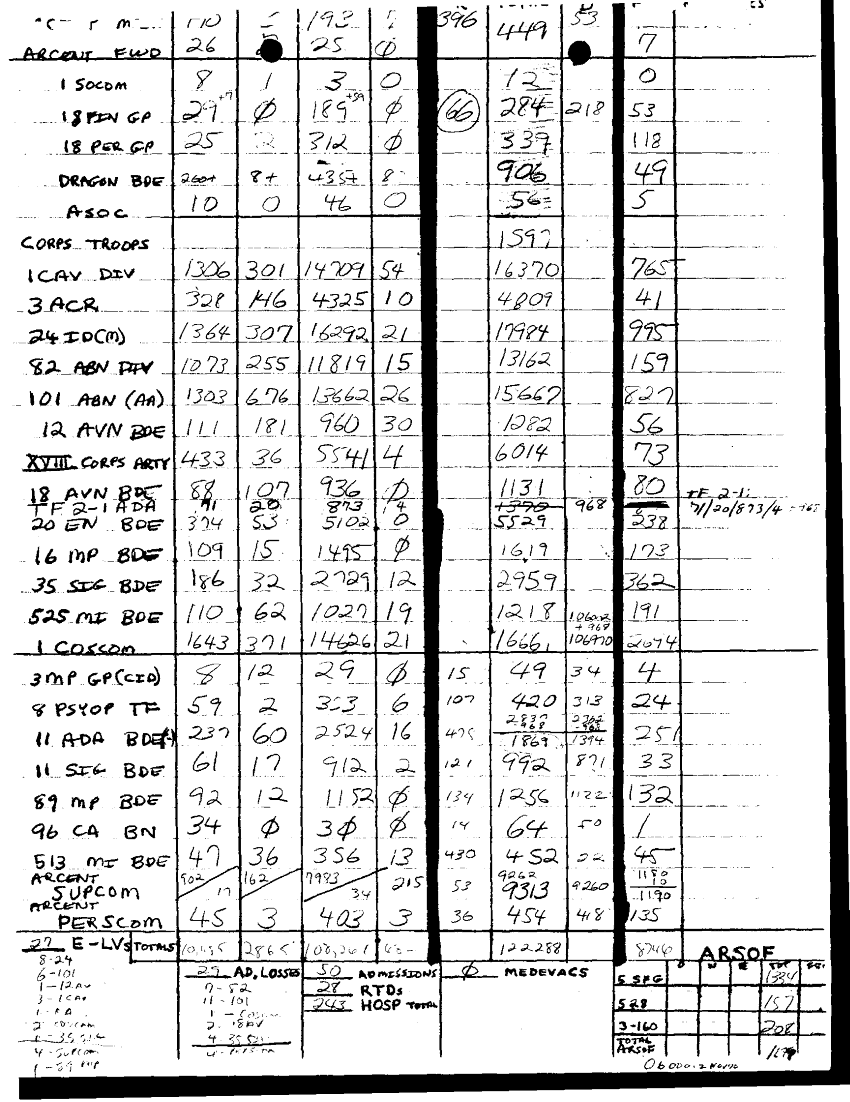 193 396 449 53
ARCENT FWD 26 25 Ø 7
1 SOCOM 8 1 3 0 12 0
18 FIN GP 29 +7 Ø 189 +59 Ø 66 284 218 53
18 PER GP 25 2 312 Ø 339 118
DRAGON BDE 260+ 8+ 4357 8 906 49
ASOC 10 0 46 0 56 5
CORPS TROOPS 1597
1 CAV DIV 1306 301 14709 54 16370 765
3 ACR 328 146 4325 10 4809 41
24 ID(M) 1364 307 16292 21 17984 995
82 ABN DIV 1073 255 11819 15 13162 159
101 ABN (AA) 1303 676 13662 26 15667 827
12 AVN BDE 111 181 960 30 1282 56
XVIII CORPS ARTY 433 36 5541 4 6014 73
18 AVN BDE 88 107 936 Ø 1131 80 TF 2-1:
TF 2-1 ADA 71 20 873 4 968 71/20/873/4 = 968
20 EN BDE 374 53 5102 0 5529 238
16 MP BDE 109 15 1495 Ø 1619 173
35 SIG BDE 186 32 2729 12 2959 362
525 MI BDE 110 62 1027 19 1218 106002 191
+968
1 COSCOM 1643 371 14626 21 16661 106970 2674
3 MP GP (CID) 8 12 29 Ø 15 49 34 4
8 PSYOP TF 59 2 353 6 107 420 313 24
2837 2362
-968 -968
11 ADA BDE(-) 237 60 2524 16 475 1869 1394 251
11 SIG BDE 61 17 912 2 121 992 871 33
89 MP BDE 92 12 1152 Ø 134 1256 1122 132
96 CA BN 34 Ø 30 Ø 14 64 50 1
513 MI BDE 47 36 356 13 430 452 22 45
ARCENT 902 162 7983 215 9262 1180
SUPCOM 17 34 53 9313 9260 10
1190
ARCENT
PERSCOM 45 3 403 3 36 454 418 135
27 E-LVs TOTALS 2865 122288 8746 ARSOF
8-24 27 AD. LOSSES 50 ADMISSIONS Ø MEDEVACS O W E TOT
6-101 7-82 28 RTDs 5 SFG 1334
1-12AV 11-101 243 HOSP TOTAL
3-1CAV 1-COSCOM 528 157
2 COSCOM 2-18AV
4 35 SIG 3-160 208
4-SUPCOM TOTAL
1-89 MP ARSOF